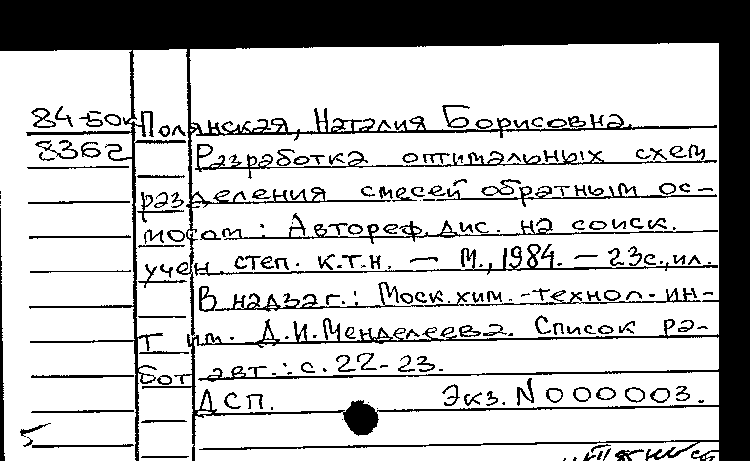 84-50к Полянская, Наталия Борисовна.
8362 Разработка оптимальных схем
разделения смесей обратным ос-
мосом: Автореф. дис. на соиск.
учен. степ. к.т.н. — М., 1984. — 23с., ил.
В надзаг.: Моск. хим.-технол. ин-
т им. Д.И.Менделеева. Список ра-
бот авт.: с. 22-23.
ДСП. Экз. N 000003.
5